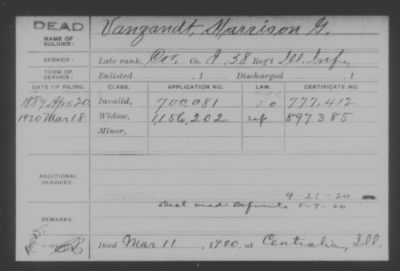 DEAD
NAME OF SOLDIER:
Vanzandt, Harrison G.
SERVICE:
Late rank, Cor, Co. A, 38 Reg't Ill. Inf.
TERM OF SERVICE:
Enlisted , 1 Discharged , 1
DATE OF FILING. CLASS. APPLICATION NO. LAW. CERTIFICATE NO.
1889 Apr. 20 Invalid, 700,081 777,412
1920 Mar 18 Widow, 1,156,202 897385
Minor,
ADDITIONAL SERVICES:
4-21-20
8-7-20
REMARKS:
Died Mar 11, 1920, at Centralia, Ill.